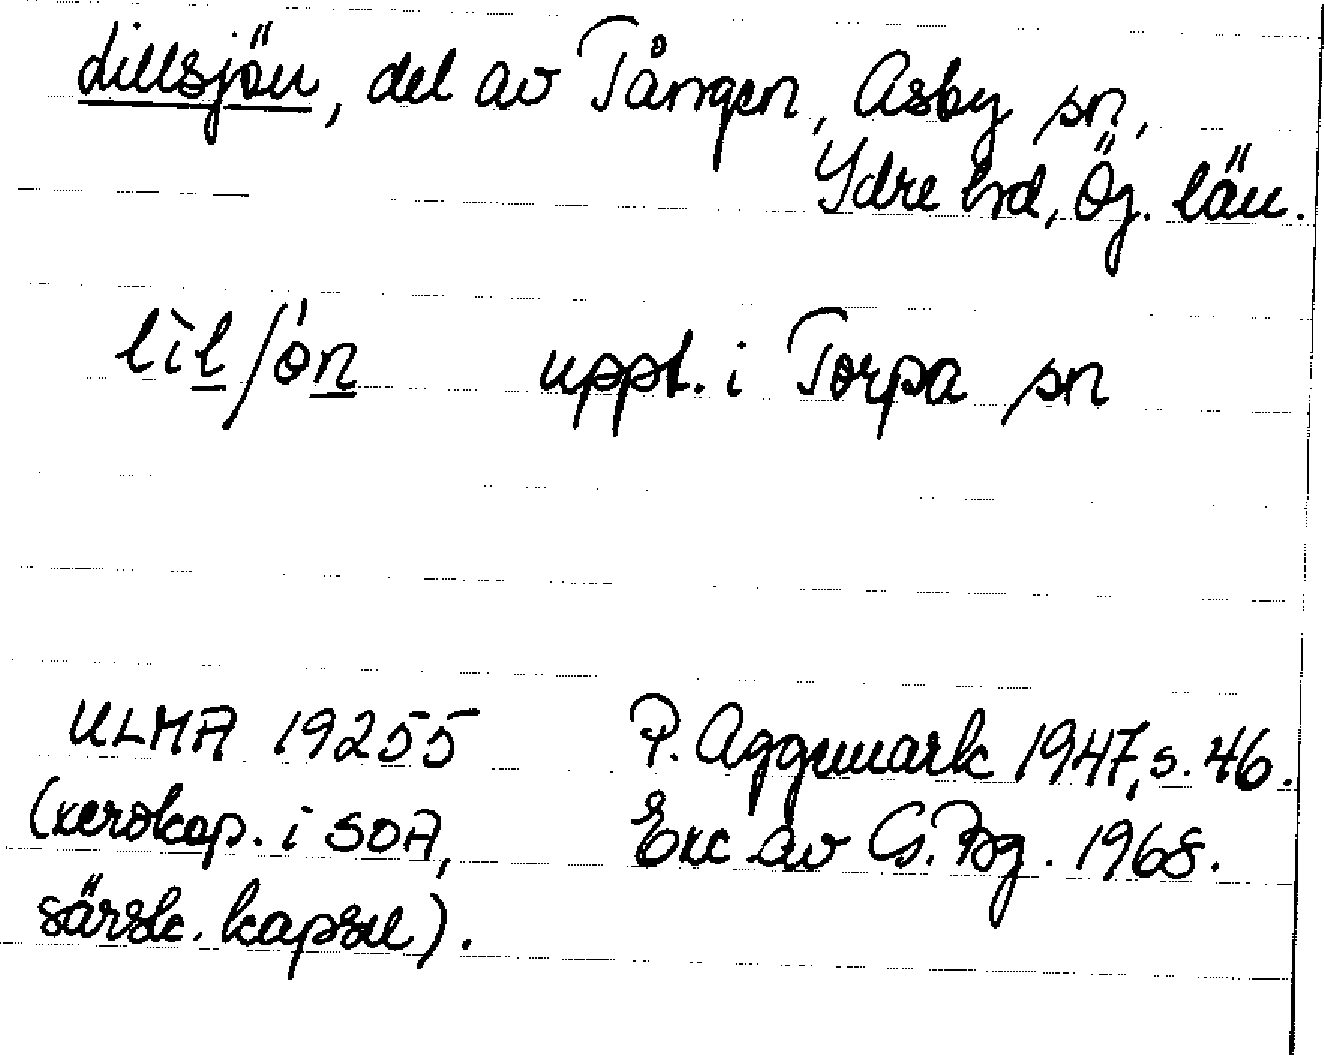 Lillsjön, del av Tången, Asby sn,
Ydre hd, Ög. län.
lìl/ón uppt. i Torpa sn
ULMA 19255 P. Aggemark 1947, s. 46.
(xerokop. i SOA, Exc av G. Bg. 1968.
särsk. kapsel).